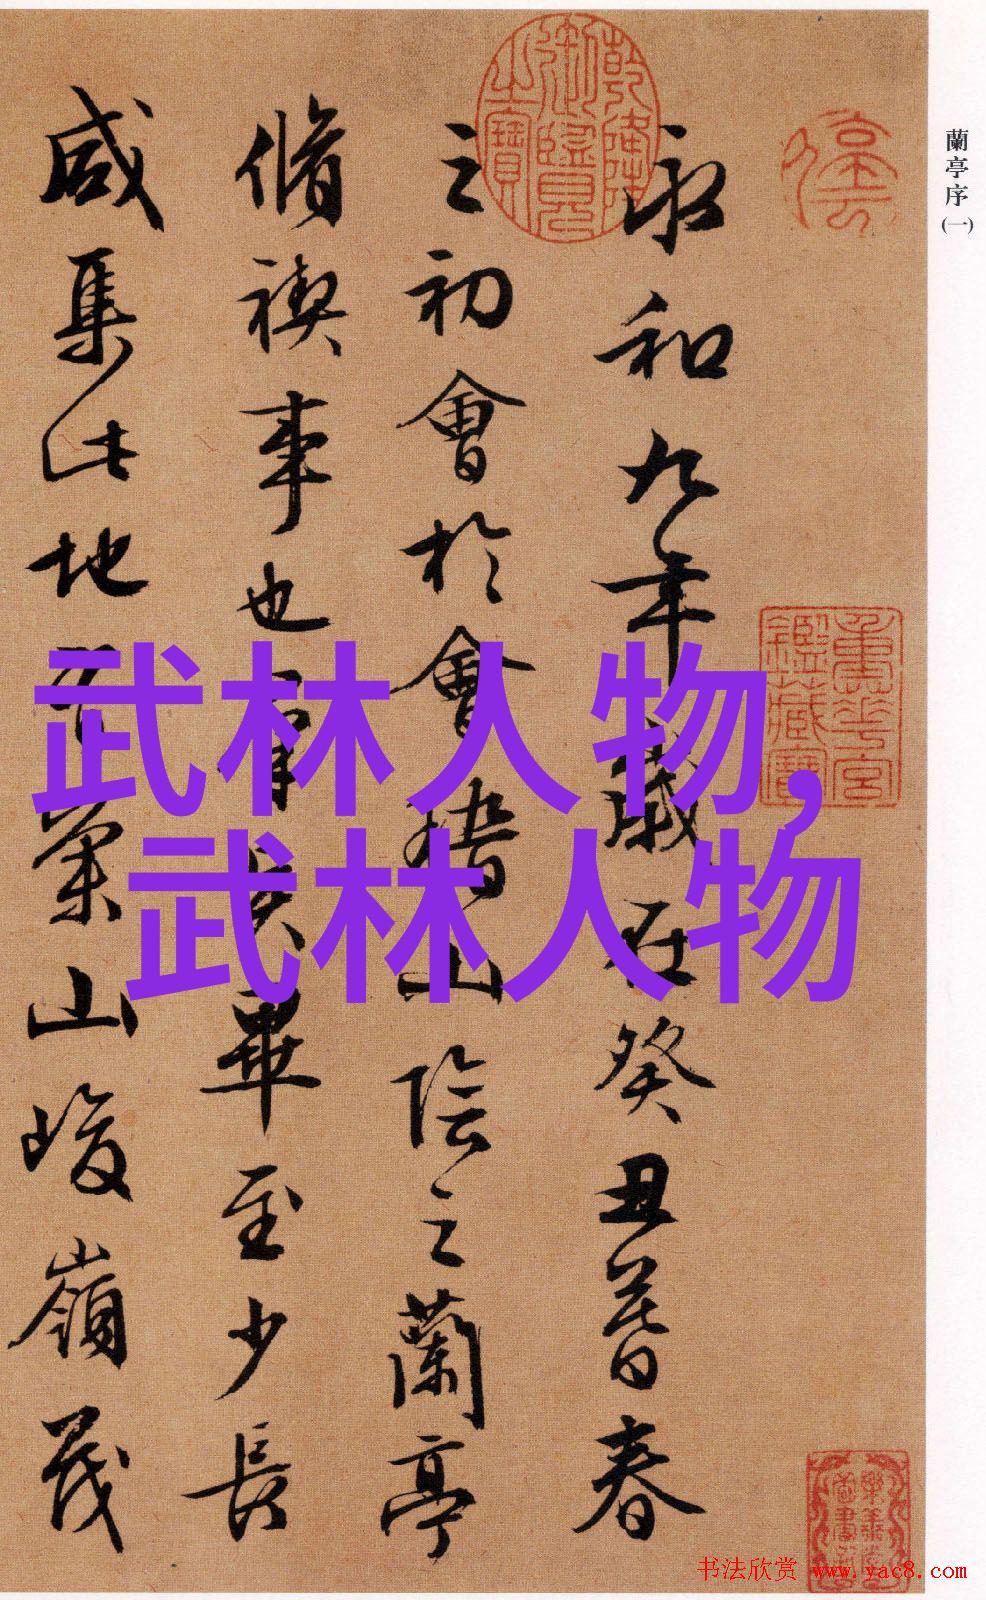 蘭亭序(一)
永和九年歲在癸丑暮春
之初會於會稽山陰之蘭亭
脩禊事也羣賢畢至少長
咸集此地有崇山峻嶺茂
乾隆御覽之寶
重華宮鑑藏寶
武林人物,
武林人物
书法欣赏 www.yac8.com